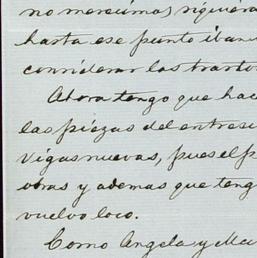 no merecimos siquiera
hasta ese punto iban
considerar los trastos
Ahora tengo que hac
las piezas del entresu
vigas nuevas, pues el p
obras y ademas que teng
vuelvo loco.
Como Angela y Ma